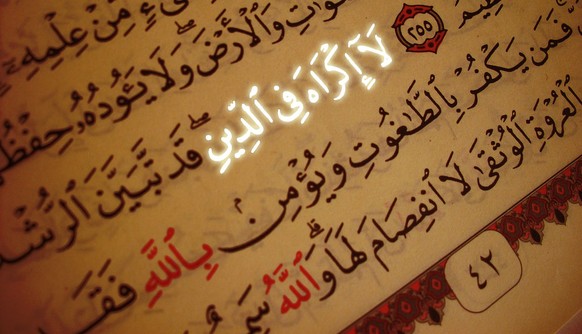 مِّنْ عِلْمِهِۦٓ
وَٱلْأَرْضَ وَلَا يَـُٔودُهُۥ حِفْظُ
ظِيمُ ٢٥٥ لَآ إِكْرَاهَ فِى ٱلدِّينِ قَد تَّبَيَّنَ ٱلرُّشْ
فَمَن يَكْفُرْ بِٱلطَّٰغُوتِ وَيُؤْمِنۢ بِٱللَّهِ فَقَ
ٱلْعُرْوَةِ ٱلْوُثْقَىٰ لَا ٱنفِصَامَ لَهَا وَٱللَّهُ سَمِ
٤٢